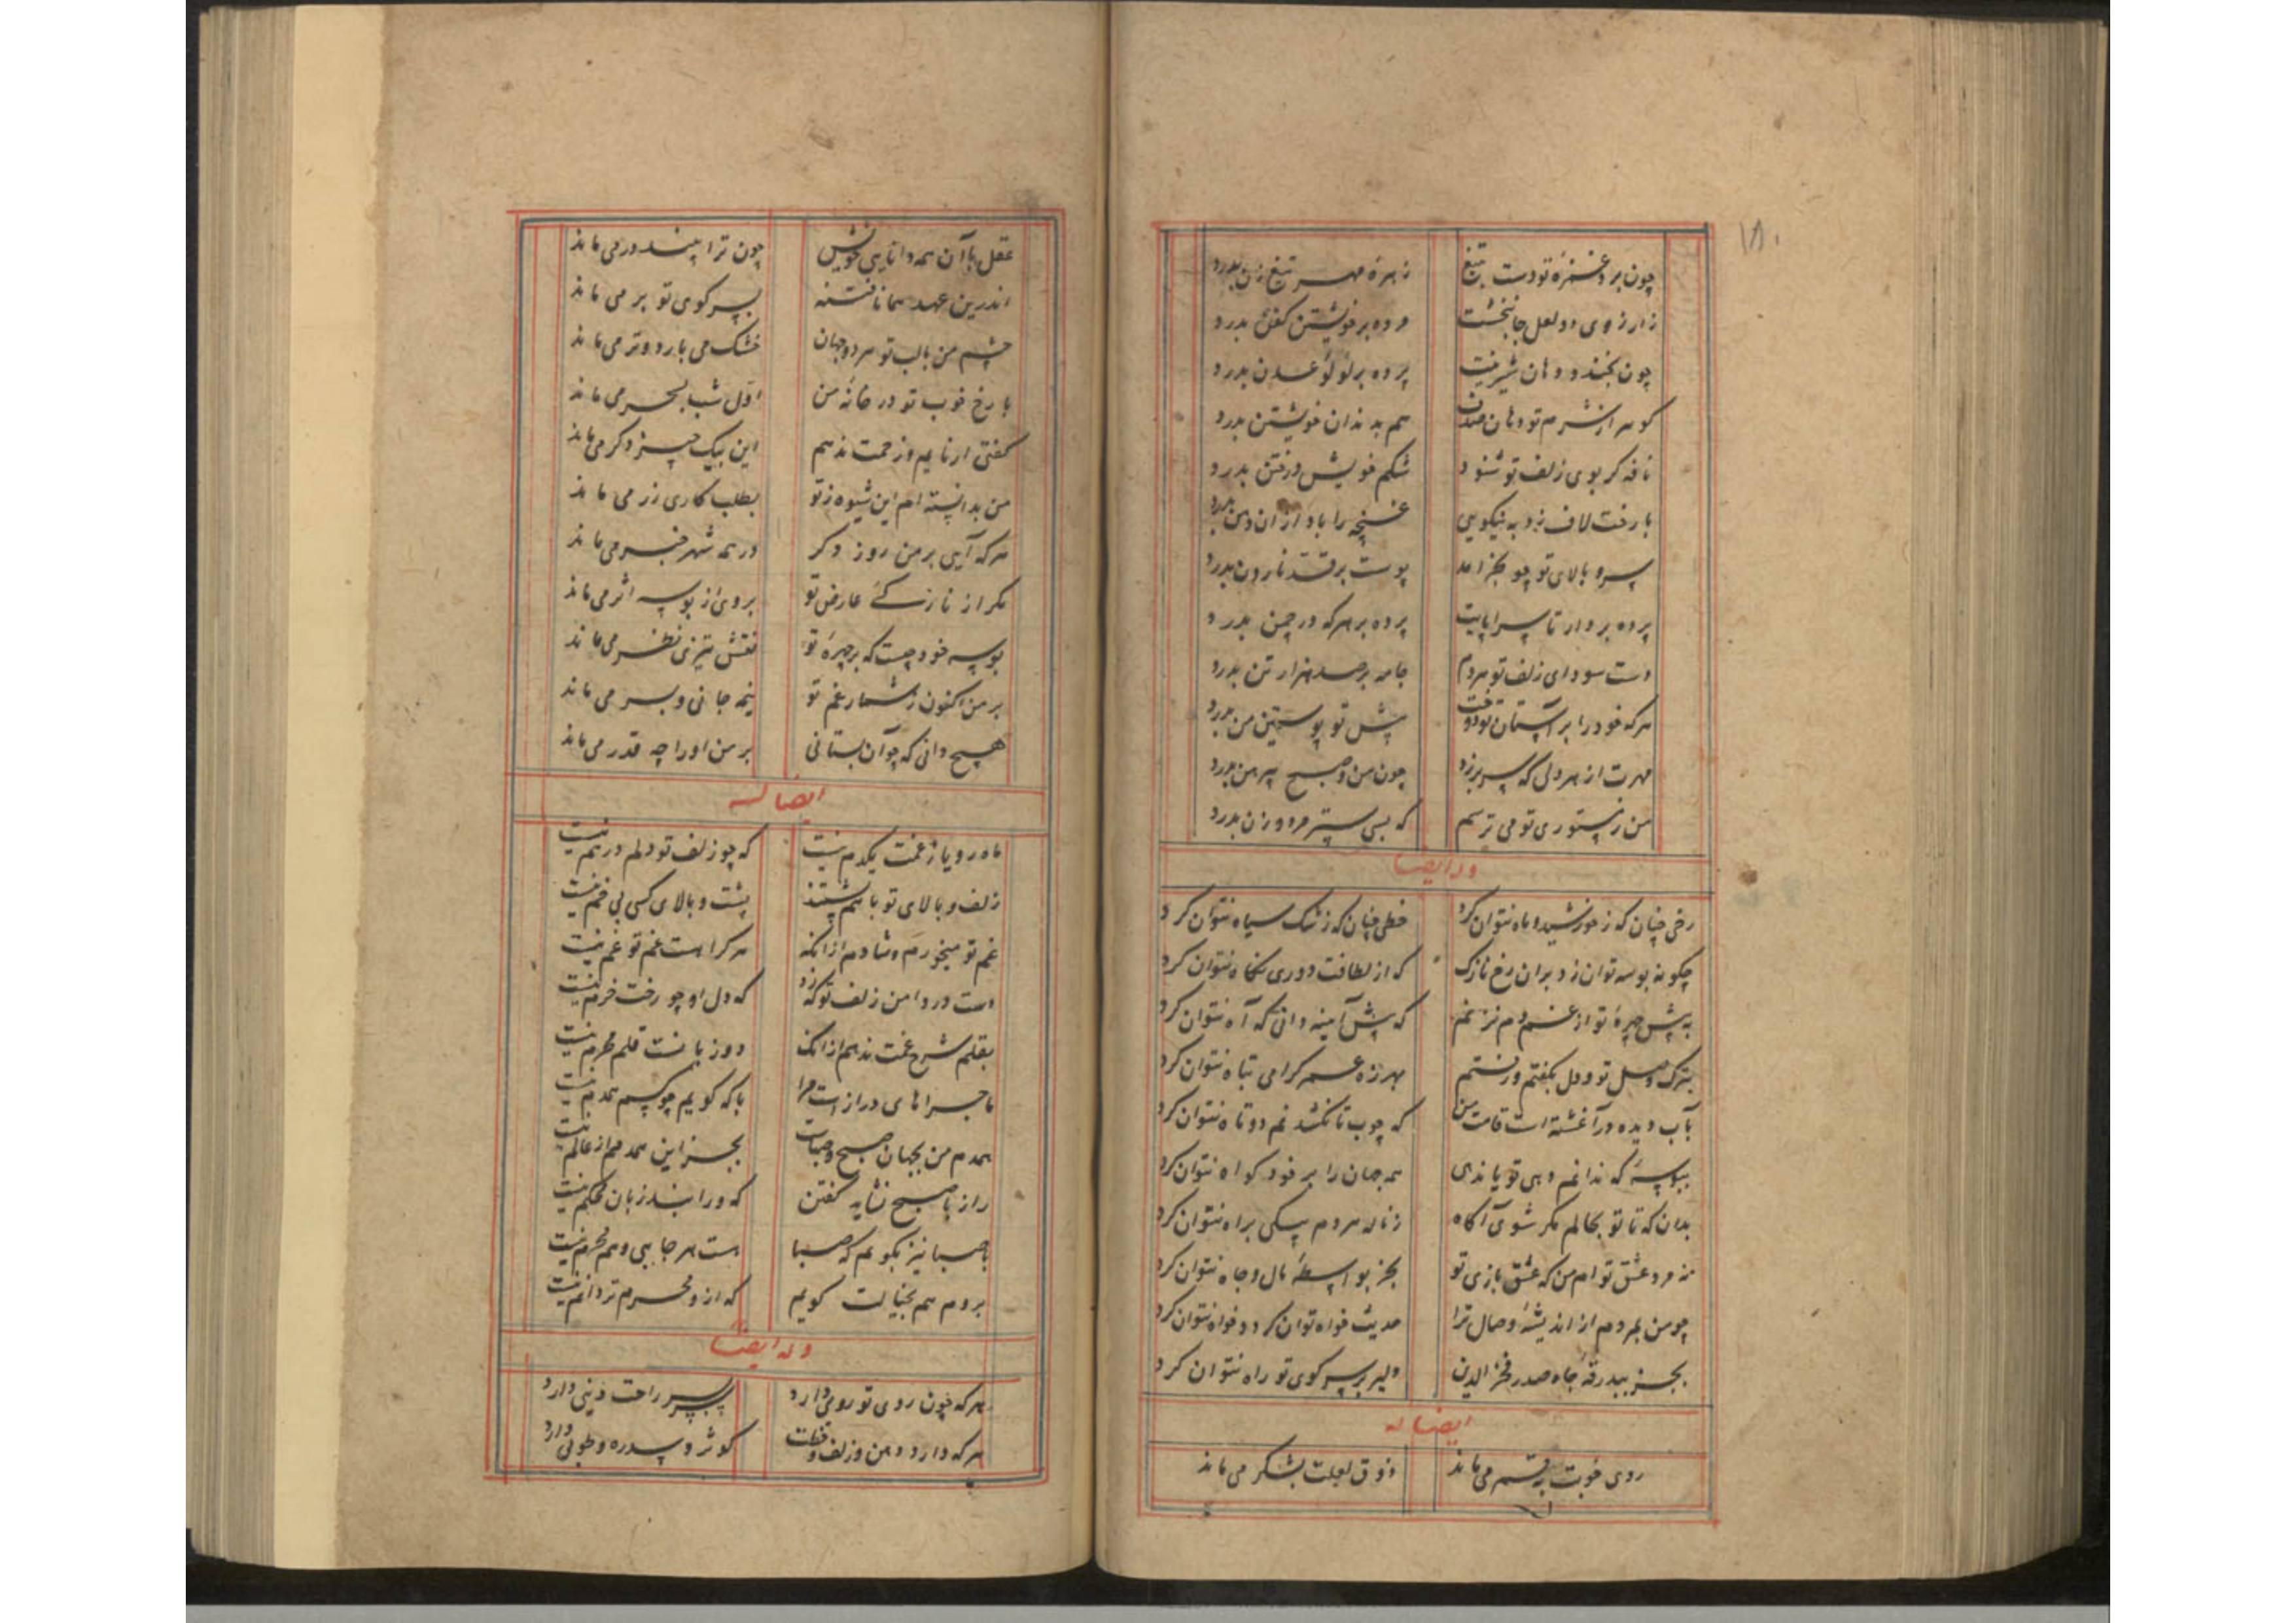 ۱۸۰
چون برد غمزهٔ تو دست بتیغ زهرهٔ مهر تیغ زن بدرد
ز آرزوی دو لعل جانبخشت مرده بر خویشتن کفن بدرد
چون بخندد دهان شیرینت پرده بر لولو عدن بدرد
گوهر از شرم تو دهان صدف هم بدندان خویشتن بدرد
نافه گر بوی زلف تو شنود شکم خویش در ختن بدرد
با رخت لاف زد به نیکویی غنچه را باد از ان دهن بدرد
سرو بالای تو چو بخرامد پوست بر قد نارون بدرد
پرده بردار تا سراپایت پرده بر هر که در چمن بدرد
دست سودای زلف تو هر دم جامه بر صد هزار تن بدرد
هر که خود را بر آستان تو دوخت پیش تو پوستین من بدرد
مهرت از هر دلی که سر برزد چون من و صبح پیرهن بدرد
من ز مستوری تو می ترسم که بسی ستر مرد و زن بدرد
وله ایضا
رخی چنان که ز خورشید و ماه نتوان کرد خطی چنان که ز مشک سیاه نتوان کرد
چگونه بوسه توان زد بران رخ نازک که از لطافت دوری نگاه نتوان کرد
به پیش چهرهٔ تو از غم دم نزنم که پیش آینه دانی که آه نتوان کرد
بترک وصل تو و دل بگفتم و رستم بهرزه عمر گرامی تباه نتوان کرد
بآب دیده در آغشته است قامت من که چوب تا نکشد نم دوتاه نتوان کرد
ببوسهٔ که ندانم دهی تو یا ندهی همه جهان را بر خود گواه نتوان کرد
بدان که تا تو بحالم مگر شوی آگاه ز ناله هر دم پیکی براه نتوان کرد
نه مرد عشق توام من که عشق بازی تو بجز بواسطهٔ مال و جاه نتوان کرد
چو من بمردم از اندیشهٔ وصال ترا حدیث خواه توان کرد و خواه نتوان کرد
بجز ببدرقهٔ جاه صدر فخرالدین دلیر بر سر کوی تو راه نتوان کرد
ایضا له
روی خوبت بقمر می ماند ذوق لعلت بشکر می ماند
عقل با آن همه دانایی خویش چون ترا بیند در می ماند
اندرین عهد همانا فتنه بسر کوی تو بر می ماند
چشم من بالب تو هر دو جهان خشک می بارد و تر می ماند
با رخ خوب تو در خانهٔ من اول شب بسحر می ماند
گفتی ار نایم و زحمت ندهم این بیک چیز دگر می ماند
من بدانسته ام این شیوه ز تو بطلب کاری زر می ماند
هر که آیی بر من روز دگر در همه شهر خبر می ماند
مگر از نازکی عارض تو بروی از بوسه اثر می ماند
بوسه خود چیست که بر چهرهٔ تو نقش تیزی نظر می ماند
بر من اکنون ز شمار غم تو نیمه جانی و بسر می ماند
هیچ دانی که چو آن بستانی بر من او را چه قدر می ماند
ایضا له
ماه رویا ز غمت یکدم نیست که چو زلف تو دلم درهم نیست
زلف و بالای تو باهم پشتند پشت و بالای کسی بی خم نیست
غم تو میخورم و شادم از انکه هر کرا هست غم تو غم نیست
دست در دامن زلف تو که زد که دل او چو رخت خرم نیست
بقلم شرح غمت ندهم از انک دو زبانست قلم محرم نیست
ماجراهای درازست مرا با که گویم چو کسم همدم نیست
همدم من بجهان صبح و صباست بجز این همدمم از عالم نیست
راز با صبح نشاید گفتن که ورا بند زبان محکم نیست
با صبا نیز نگویم که صبا هست هر جایی و هم محرم نیست
بر دم هم بخیالت گویم که ازو محرم تر دانم نیست
وله ایضا
هر که چون روی تو رویی دارد بر سر راحت دنیی دارد
هر که دارد دهن و زلف و خطت کوثر و سدره و طوبی دارد